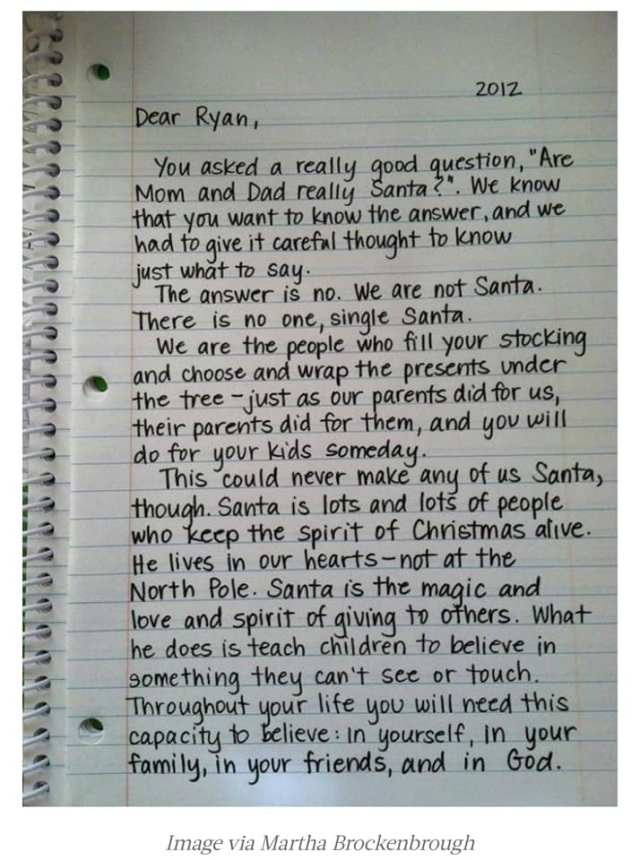 2012
Dear Ryan,
You asked a really good question, "Are
Mom and Dad really Santa?". We know
that you want to know the answer, and we
had to give it careful thought to know
just what to say.
The answer is no. We are not Santa.
There is no one, single Santa.
We are the people who fill your stocking
and choose and wrap the presents under
the tree - just as our parents did for us,
their parents did for them, and you will
do for your kids someday.
This could never make any of us Santa,
though. Santa is lots and lots of people
who keep the spirit of Christmas alive.
He lives in our hearts - not at the
North Pole. Santa is the magic and
love and spirit of giving to others. What
he does is teach children to believe in
something they can't see or touch.
Throughout your life you will need this
capacity to believe: in yourself, in your
family, in your friends, and in God.
Image via Martha Brockenbrough